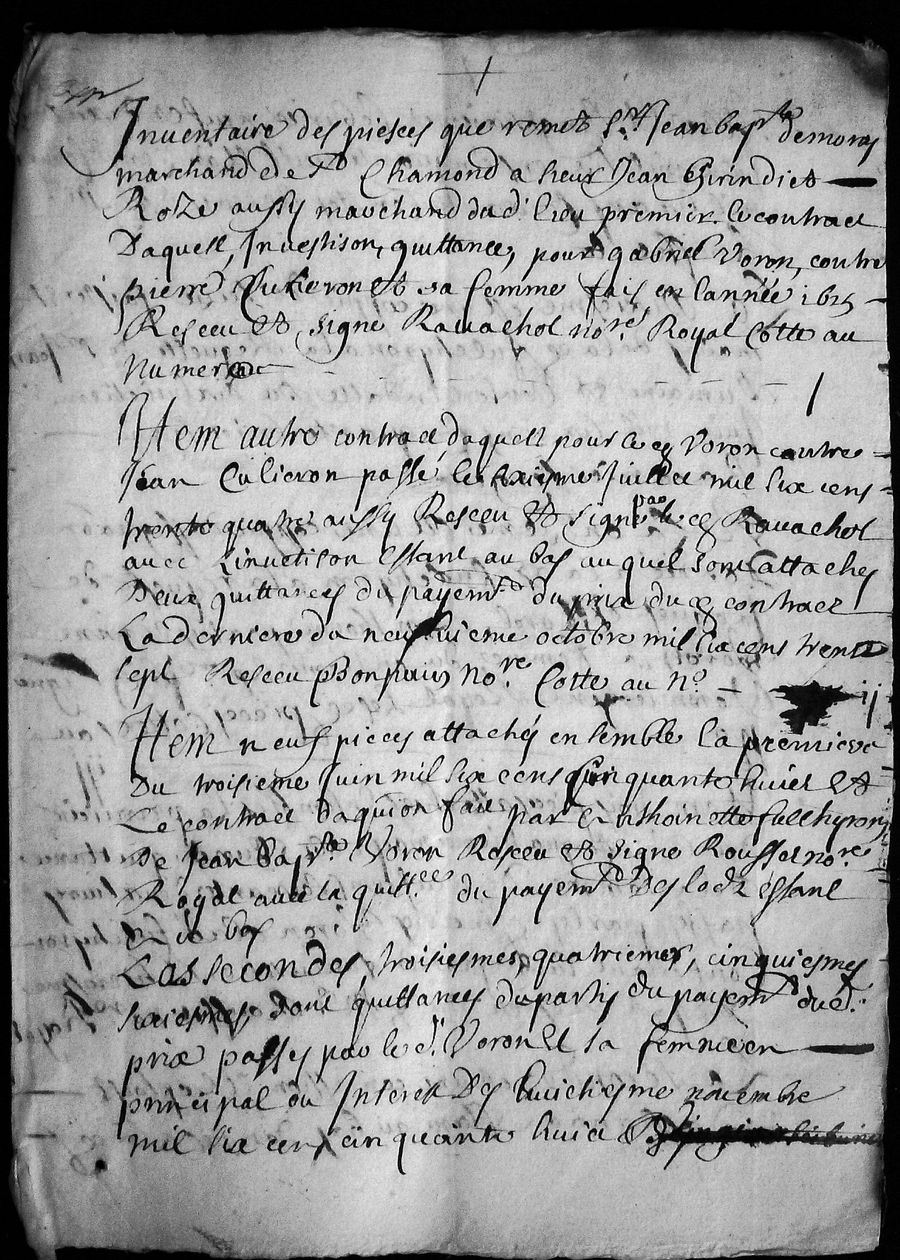 Inventaire des piesces que remet Sr Jean bapte demoras
marchand de St Chamond a sieur Jean Girindiet
Roze aussy marchand du d. lieu premier le contract
Daquest, Investison, quittances, pour gabriel Voron, contre
pierre Culieron et sa femme fais en lannée 1625
Resceu et signe Rauachol nore Royal Cotte au
numero
I
Item autre contract daquest pour le d Voron contre
Jean Culieron passé le juillet mil six cens
trente quatre aussy Resceu et signe par le d Rauachol
auec Linuetison estant au bas auquel sont attaches
Deux quittances du payemt du prix du d contract
La derniere du neufuieme octobre mil six cens trente
sept Resceu Bonpain nore Cotte au no ij
Item neuf pieces attachés ensemble la premiere
Du troisieme Juin mil six cens cinquante huict et
Le contract daquion fait par Anthoinette fulchyron
De Jean bapte Voron Resceu et signe Roussel nore
Royal auec la quittce du payemt Des lodz estant
en bas
Las secondes, troisiesmes, quatriemes, cinquiesmes
sont quittances du partis du payemt du d.
prix passes par le d. Voron et sa femme en
principal ou Interet Des huictiesme nouembre
mil six cens cinquante huict